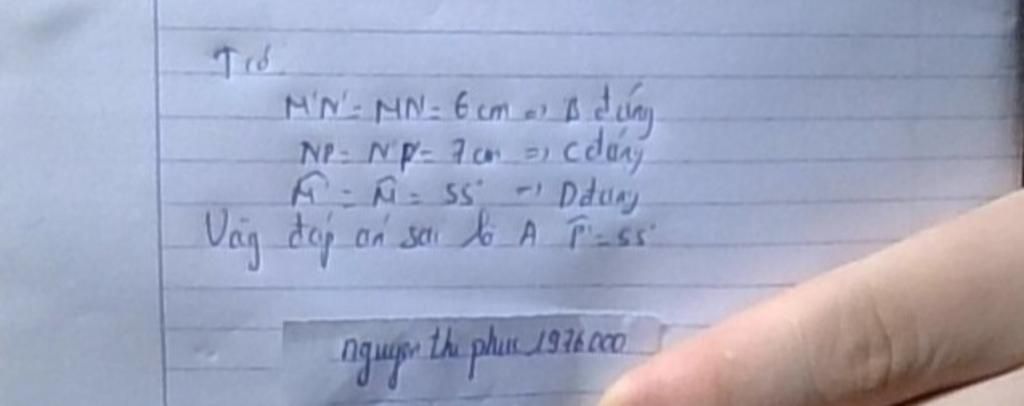 Trả
M'N' = MN = 6 cm => B đúng
NP = N'P' = 7 cm => C đúng
M̂' = M̂ = 55° => D đúng
Vậy đáp án sai là A P̂' = 55°
nguyen thi phuc 1976000